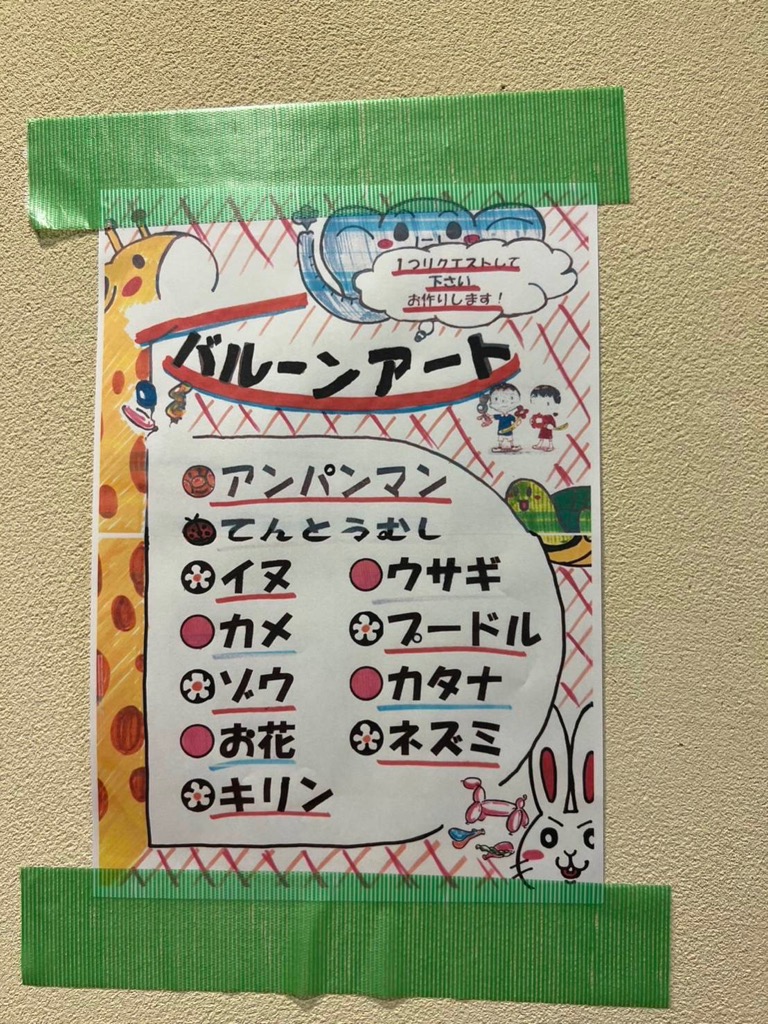 1つリクエストして
下さい
お作りします!
バルーンアート
アンパンマン
てんとうむし
イヌ ウサギ
カメ プードル
ゾウ カタナ
お花 ネズミ
キリン